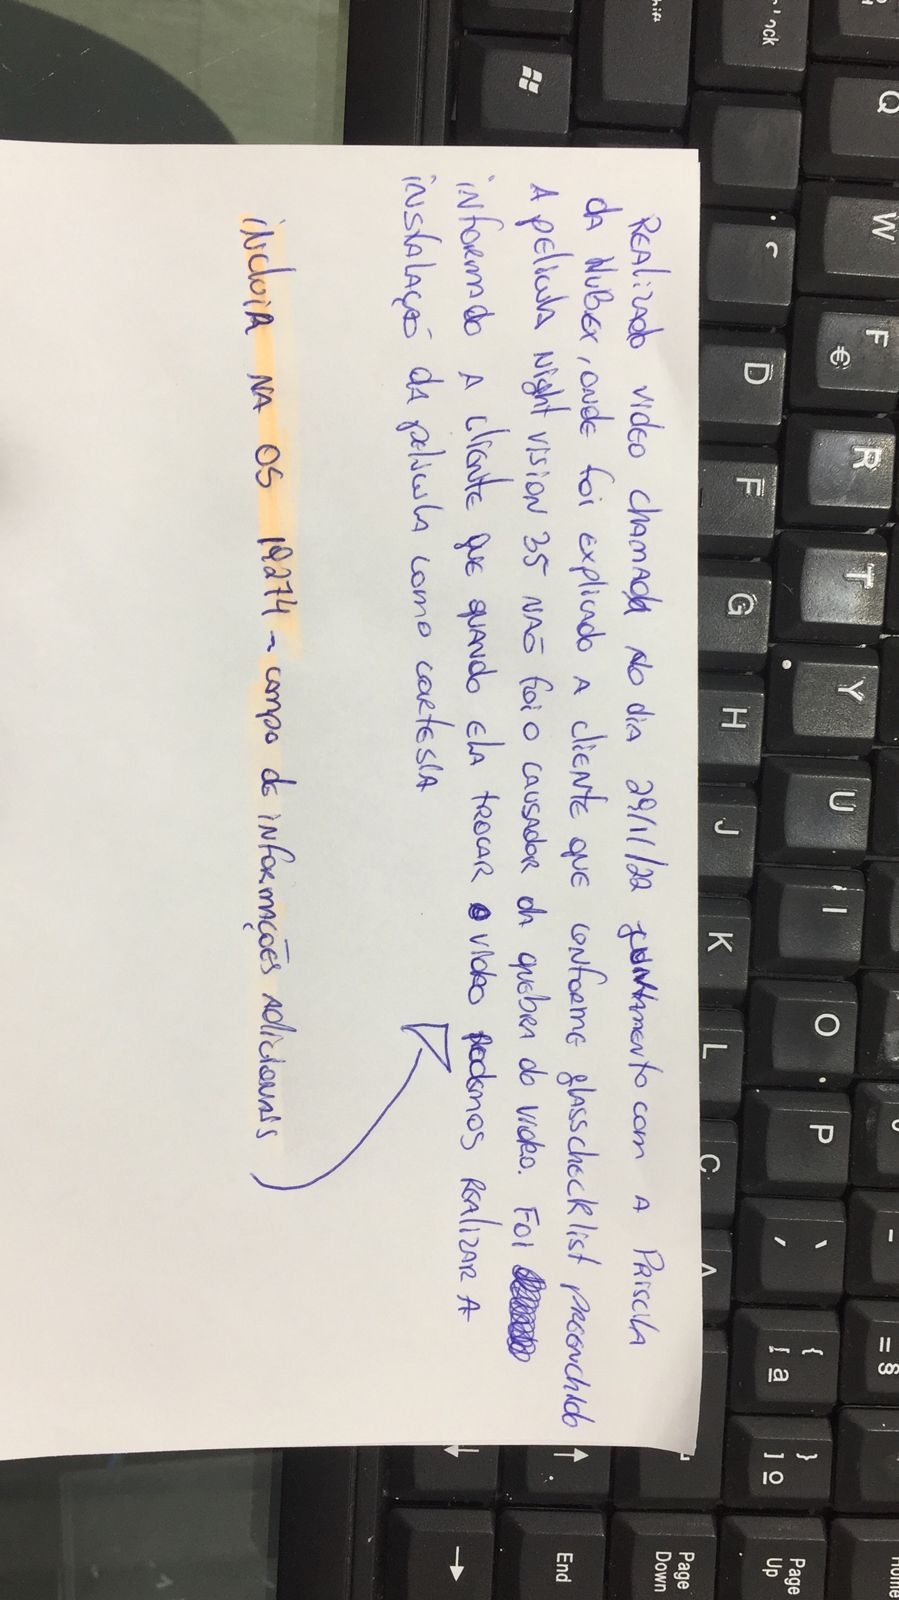 REALIZADO VIDEO CHAMADA NO DIA 29/11/22 JUNTAMENTO COM A PRISCILA
DA NUBEX, ONDE FOI EXPLICADO A CLIENTE QUE CONFORME GLASS CHECKLIST PREENCHIDO
A PELICULA NIGHT VISION 35 NÃO FOI O CAUSADOR DA QUEBRA DO VIDRO. FOI
INFORMADO A CLIENTE QUE QUANDO ELA TROCAR O VIDRO PODEMOS REALIZAR A
INSTALAÇÃO DA PELICULA COMO CORTESIA
INCLUIR NA OS 19274 - CAMPO DE INFORMAÇÕES ADICIONAIS
Q
W
F €
R
T
Y
U
I
O
P
D
F
G
H
J
K
L
Ç
End
Page Down
Page Up